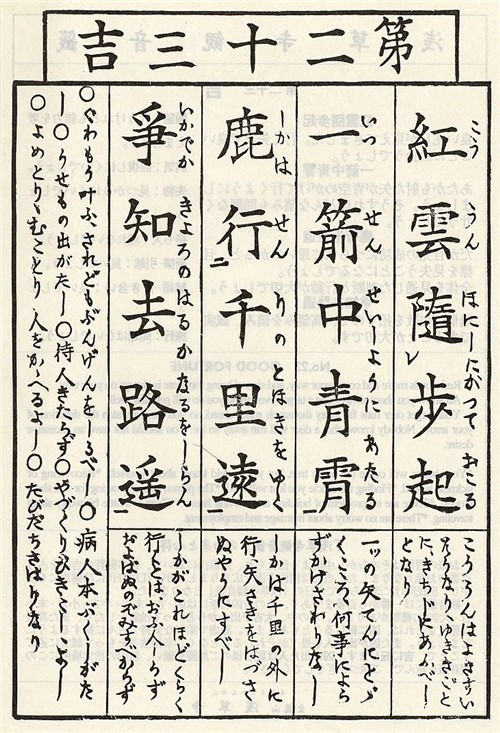 第二十三吉
紅雲隨歩起
こううんほにしたがつておこる
こううんは
ゆきごと
に、きちじにあふべし
となり
一箭中青霄
いつせんせいしようあたる
一ツの矢てんにとゞ
くこころ何事によら
ずかけさわりなし
鹿行二千里遠一
しかはせんりのとほきをゆく
しかは千里の外に
行矢さきをはづさ
ぬやうにすべし
爭知去路遥
いかでかきよろのはるかなるをしらん
かがこれほどとくらく
行とはおもひしらず
およばぬのぞみすべからず
○ぐわもうかなふ、されどもぶんげんをしるべし○病人本ぶくしがた
し○うせもの出がたし○待人きたらず○やづくりひきこしよし
○よめとりむことり人をかゝへるよし○たびだちさはりなし